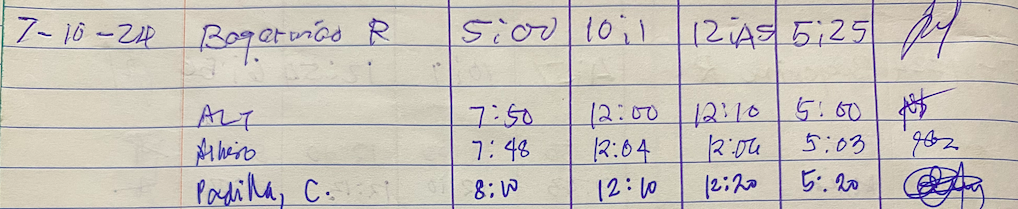 7-10-24 R 5:00 10:1 12:A5 5:25
ALT 7:50 12:00 12:10 5:00
7:48 12:04 12:06 5:03
Padilla, C. 8:10 12:10 12:20 5:20